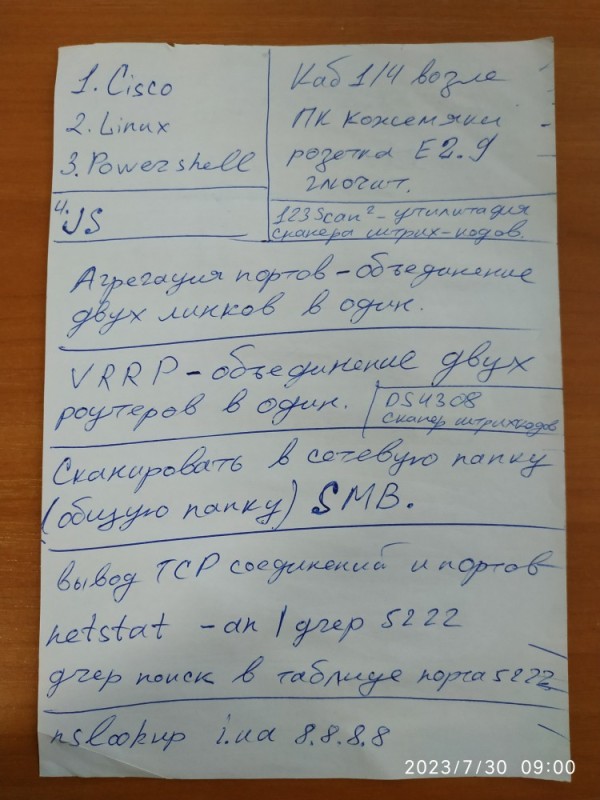 1. Cisco
2. Linux
3. Powershell
4. JS
Каб 114 возле
ПК кожемяки
розетка E2.9
глючит.
123Scan² - утилита для
сканера штрих-кодов.
Агрегация портов - объединение
двух линков в один.
VRRP - объединение двух
роутеров в один.
DS4308
Сканер штрихкодов
Сканировать в сетевую папку
(общую папку) SMB.
вывод TCP соединений и портов
netstat -an | дчер 5222
дчер поиск в таблице порта 5222
nslookup i.ua 8.8.8.8
2023/7/30 09:00